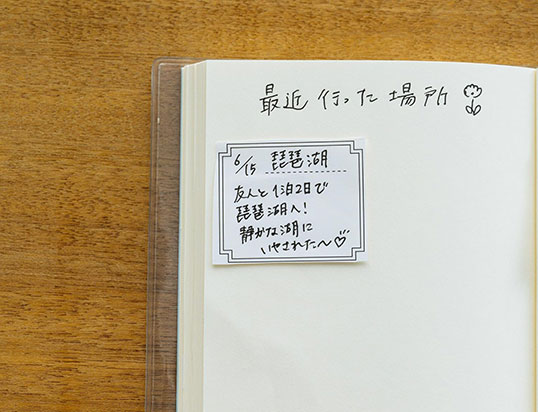 最近行った場所
6/15 琵琶湖
友人と1泊2日で
琵琶湖へ!
静かな湖に
いやされた〜♡